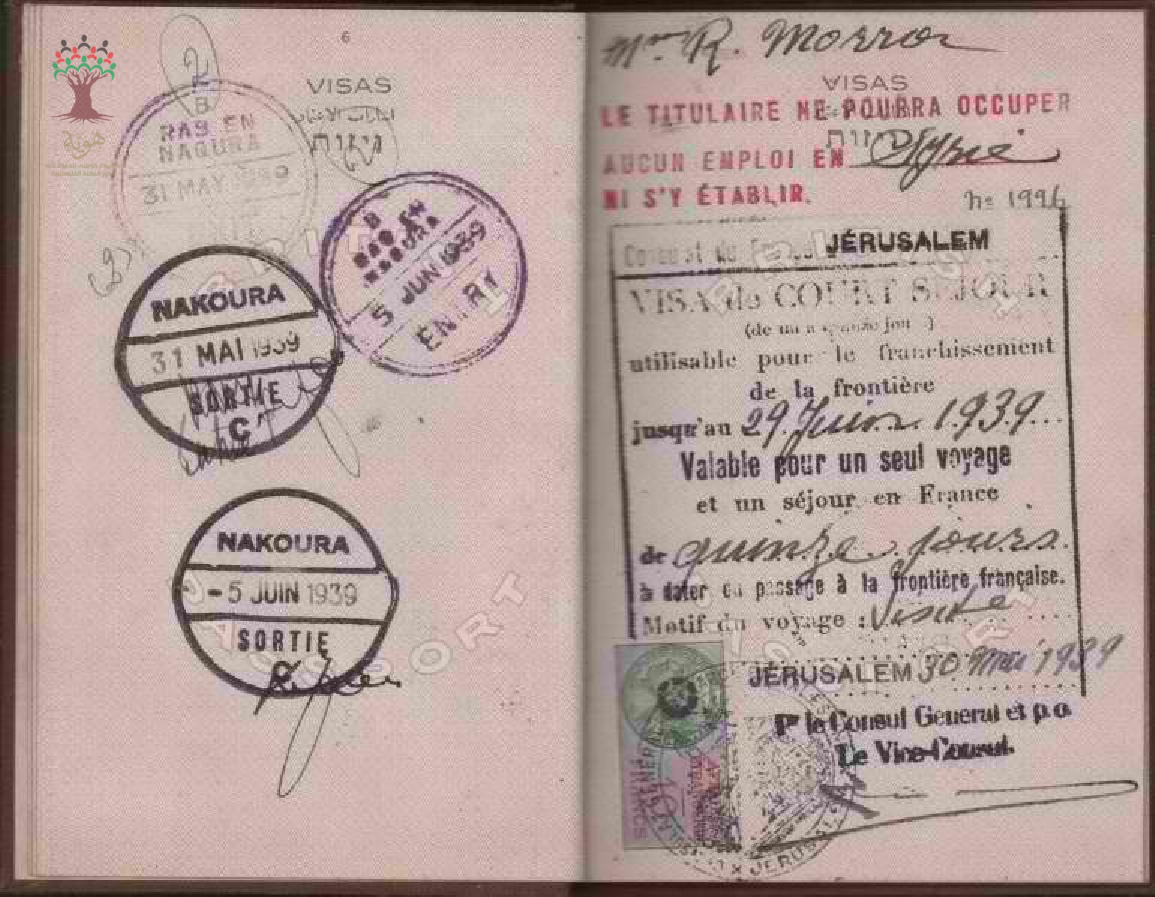 6
VISAS
ויזות
B
RAS EN
NAQURA
31 MAY 1939
B
RAS EN
NAQURA
5 JUN 1939
ENTRY
NAKOURA
31 MAI 1939
SORTIE
C
NAKOURA
-5 JUIN 1939
SORTIE
C
هوية
BRITISH
PASSPORT
R. Morror
VISAS
ויזות
LE TITULAIRE NE POURRA OCCUPER
AUCUN EMPLOI EN Syrie
NI S'Y ÉTABLIR.
No 1996
Consulat de France JÉRUSALEM
VISA de COURT SÉJOUR
(de un à quinze jours)
utilisable pour le franchissement
de la frontière
jusqu'au 29 Juin 1939
Valable pour un seul voyage
et un séjour en France
de quinze jours
à dater du passage à la frontière française.
Motif du voyage : Visite
JÉRUSALEM 30 Mai 1939
Pr le Consul General et p.o.
Le Vice-Consul.
10
FRANCS
JERUSALEM